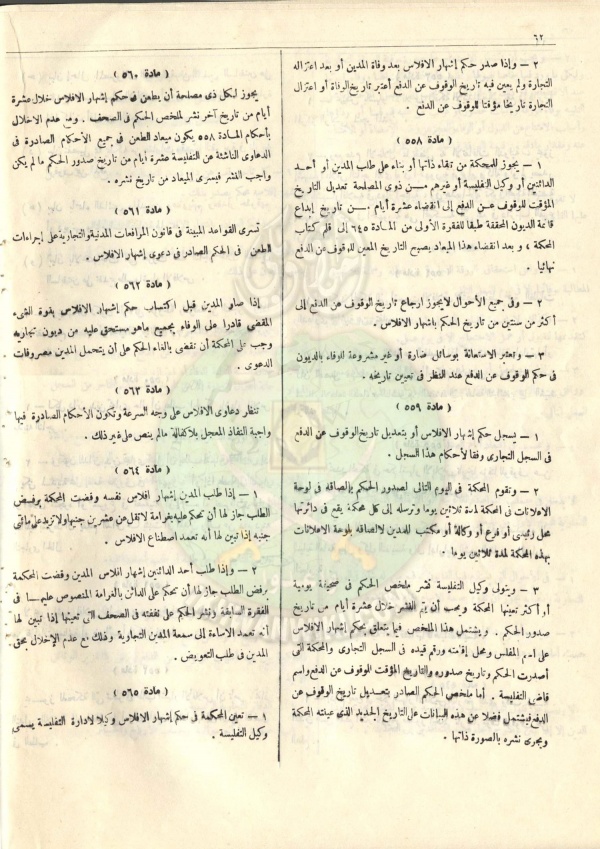 ٦٢
٢ — وإذا صدر حكم إشهار الافلاس بعد وفاة المدين أو بعد اعتزاله
التجارة ولم يعين فيه تاريخ الوقوف عن الدفع أعتبر تاريخ الوفاة أو اعتزال
التجارة تاريخا مؤقتا للوقوف عن الدفع .
( مادة ٥٥٨ )
١ — يجوز للمحكمة من تلقاء ذاتها أو بناء على طلب المدين أو أحد
الدائنين أو وكيل التفليسة أو غيرهم من ذوى المصلحة تعديل التاريخ
المؤقت للوقوف عن الدفع إلى انقضاء عشرة أيام من تاريخ إيداع
قائمة الديون المحققة طبقا للفقرة الأولى من المادة ٦٤٥ إلى قلم كتاب
المحكمة ، و بعد انقضاء هذا الميعاد يصبح التاريخ المعين للوقوف عن الدفع
نهائيا .
٢ — وفى جميع الأحوال لايجوز ارجاع تاريخ الوقوف عن الدفع إلى
أكثر من سنتين من تاريخ الحكم باشهار الافلاس .
٣ — وتعتبر الاستعانة بوسائل ضارة أو غير مشروعة للوفاء بالديون
فى حكم الوقوف عن الدفع عند النظر فى تعيين تاريخه .
( مادة ٥٥٩ )
١ — يسجل حكم إشهار الافلاس أو بتعديل تاريخ الوقوف عن الدفع
فى السجل التجارى وفقا لأحكام هذا السجل .
٢ — وتقوم المحكمة فى اليوم التالى لصدور الحكم بإلصاقه فى لوحة
الاعلانات فى المحكمة لمدة ثلاثين يوما وترسله إلى كل محكمة يقع فى دائرتها
محل رئيسى أو فرع أو وكالة أو مكتب للمدين لالصاقه بلوحة الاعلانات
بهذه المحكمة لمدة ثلاثين يوما .
٣ — ويتولى وكيل التفليسة نشر ملخص الحكم فى صحيفة يومية
أو أكثر تعينها المحكمة ويجب أن يتم النشر خلال عشرة أيام من تاريخ
صدور الحكم . ويشتمل هذا الملخص فيما يتعلق بحكم إشهار الافلاس
على اسم المفلس ومحل إقامته ورقم قيده فى السجل التجارى والمحكمة التى
أصدرت الحكم وتاريخ صدوره والتاريخ المؤقت للوقوف عن الدفع واسم
قاضى التفليسة . أما ملخص الحكم الصادر بتعديل تاريخ الوقوف عن
الدفع فيشتمل فضلا عن هذه البيانات على التاريخ الجديد الذى عينته المحكمة
ويجرى نشره بالصورة ذاتها .
( مادة ٥٦٠ )
يجوز لكل ذى مصلحة أن يطعن فى حكم إشهار الافلاس خلال عشرة
أيام من تاريخ آخر نشر لملخص الحكم فى الصحف . ومع عدم الاخلال
بأحكام المادة ٥٥٨ يكون ميعاد الطعن فى جميع الأحكام الصادرة فى
الدعاوى الناشئة عن التفليسة عشرة أيام من تاريخ صدور الحكم ما لم يكن
واجب النشر فيسرى الميعاد من تاريخ نشره .
( مادة ٥٦١ )
تسرى القواعد المبينة فى قانون المرافعات المدنية والتجارية على إجراءات
الطعن فى الحكم الصادر فى دعوى إشهار الافلاس .
( مادة ٥٦٢ )
إذا صار المدين قبل اكتساب حكم إشهار الافلاس بقوة الشىء
المقضى قادرا على الوفاء بجميع ماهو مستحق عليه من ديون تجارية
وجب على المحكمة أن تقضى بالغاء الحكم على أن يتحمل المدين مصروفات
الدعوى .
( مادة ٥٦٣ )
تنظر دعاوى الافلاس على وجه السرعة وتكون الأحكام الصادرة فيها
واجبة النفاذ المعجل بلا كفالة مالم ينص على غير ذلك .
( مادة ٥٦٤ )
١ — إذا طلب المدين إشهار افلاس نفسه وقضت المحكمة برفض
الطلب جاز لها أن تحكم عليه بغرامة لا تقل عن عشرين جنيها ولا تزيد على مائتى
جنيه إذا تبين لها أنه تعمد اصطناع الافلاس .
٢ — وإذا طلب أحد الدائنين إشهار افلاس المدين وقضت المحكمة
برفض الطلب جاز لها أن تحكم على الدائن بالغرامة المنصوص عليها فى
الفقرة السابقة وبنشر الحكم على نفقته فى الصحف التى تعينها إذا تبين لها
أنه تعمد الاساءة إلى سمعة المدين التجارية وذلك مع عدم الإخلال بحق
المدين فى طلب التعويض .
( مادة ٥٦٥ )
١ — تعين المحكمة فى حكم إشهار الافلاس وكيلا لادارة التفليسة يسمى
وكيل التفليسة .